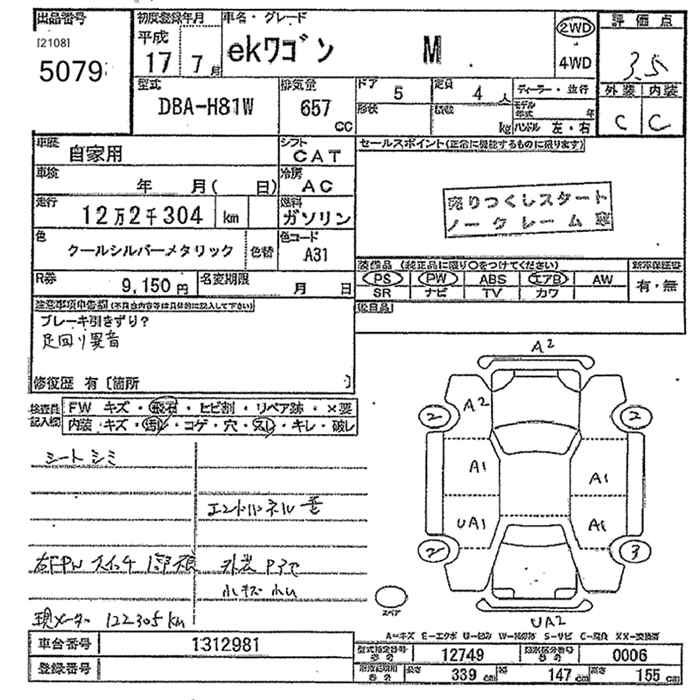 出品番号 初度登録年月 車名・グレード 2WD 評価点
[2108] 平成 ekワゴン M 4WD 3.5
5079 17 7月
型式 排気量 ドア 5 定員 4人 ディーラー・並行 外装 内装
DBA-H81W 657 CC 形状 積載 kg モデル年式 年 C C
ハンドル 左・右
車歴 自家用 シフト CAT セールスポイント(正常に機能するものに限ります)
車検 年 月( 日) 冷房 AC
売りつくしスタート
走行 12万2千304 km 燃料 ガソリン
ノークレーム
色 クールシルバーメタリック 色替 色コード A31
装備品 (純正品に限り○をつけてください) 新車保証書
R券 9,150円 名変期限 月 日
PS PW ABS エアB AW 有・無
SR ナビ TV カワ
注意事項申告欄(不具合内容等は具体的に記入して下さい) 後日品
ブレーキ引きずり?
足回り異音
修復歴 有〔箇所 〕
A2
検査員記入欄 FW キズ・飛石・ヒビ割・リペア跡・×要
内装・キズ・汚レ・コゲ・穴・スレ・キレ・破レ
A2 2 2
シートシミ
A1 A1
UA1 A1
2 3
右FPWスイッチ
小キズ 小凹
スペア
現メーター 122305km
UA2
A-キズ E-エクボ U-凹み W-補修跡 S-サビ C-腐食 XX-交換済
車台番号 1312981 型式指定番号 12749 類別区分番号 0006
登録番号 長さ 339 cm 幅 147 cm 高さ 155 cm